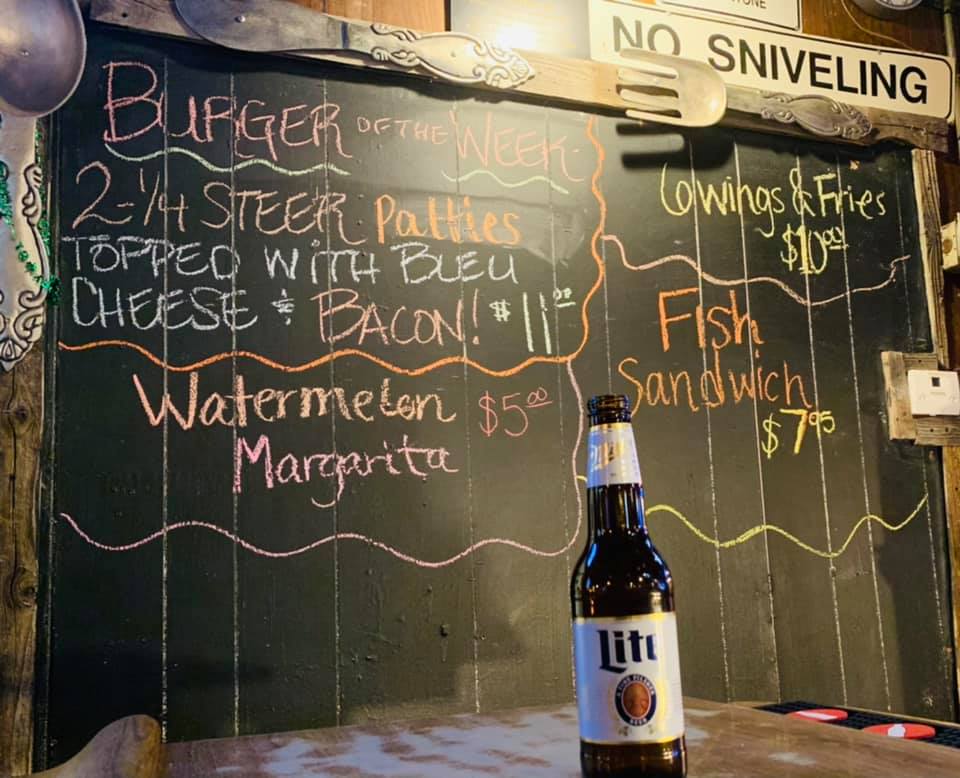 NO SNIVELING
BURGER OF THE WEEK-
2-1/4 STEER Patties
TOPPED WITH BLEU
CHEESE & BACON! $11.00
Watermelon $5.00
Margarita
6 wings & Fries
$10.00
Fish
Sandwich
$7.95
Lite
A FINE PILSNER
BEER